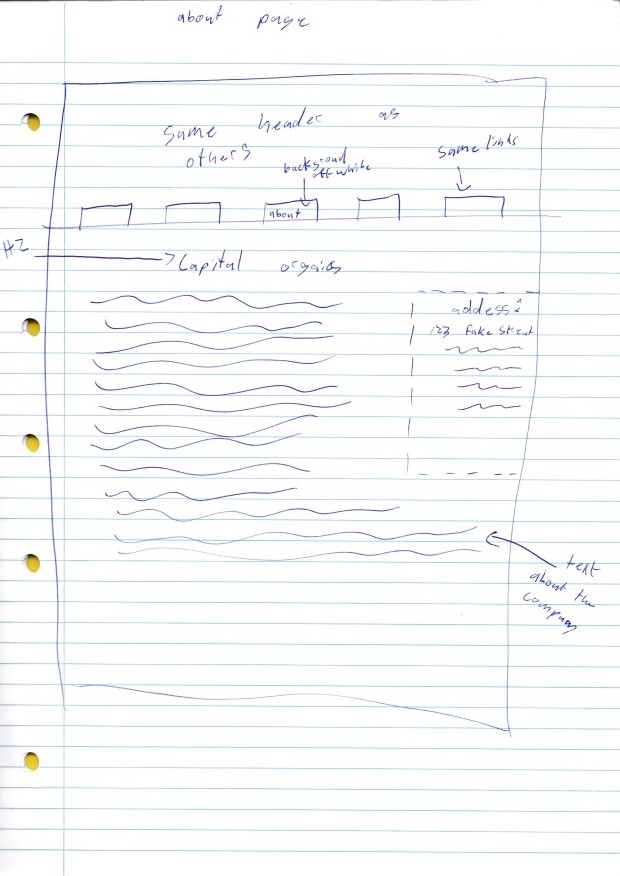 about page
same header as
others
background
off white
same links
about
H2
Capital organics
address:
123 fake street
text
about the
company